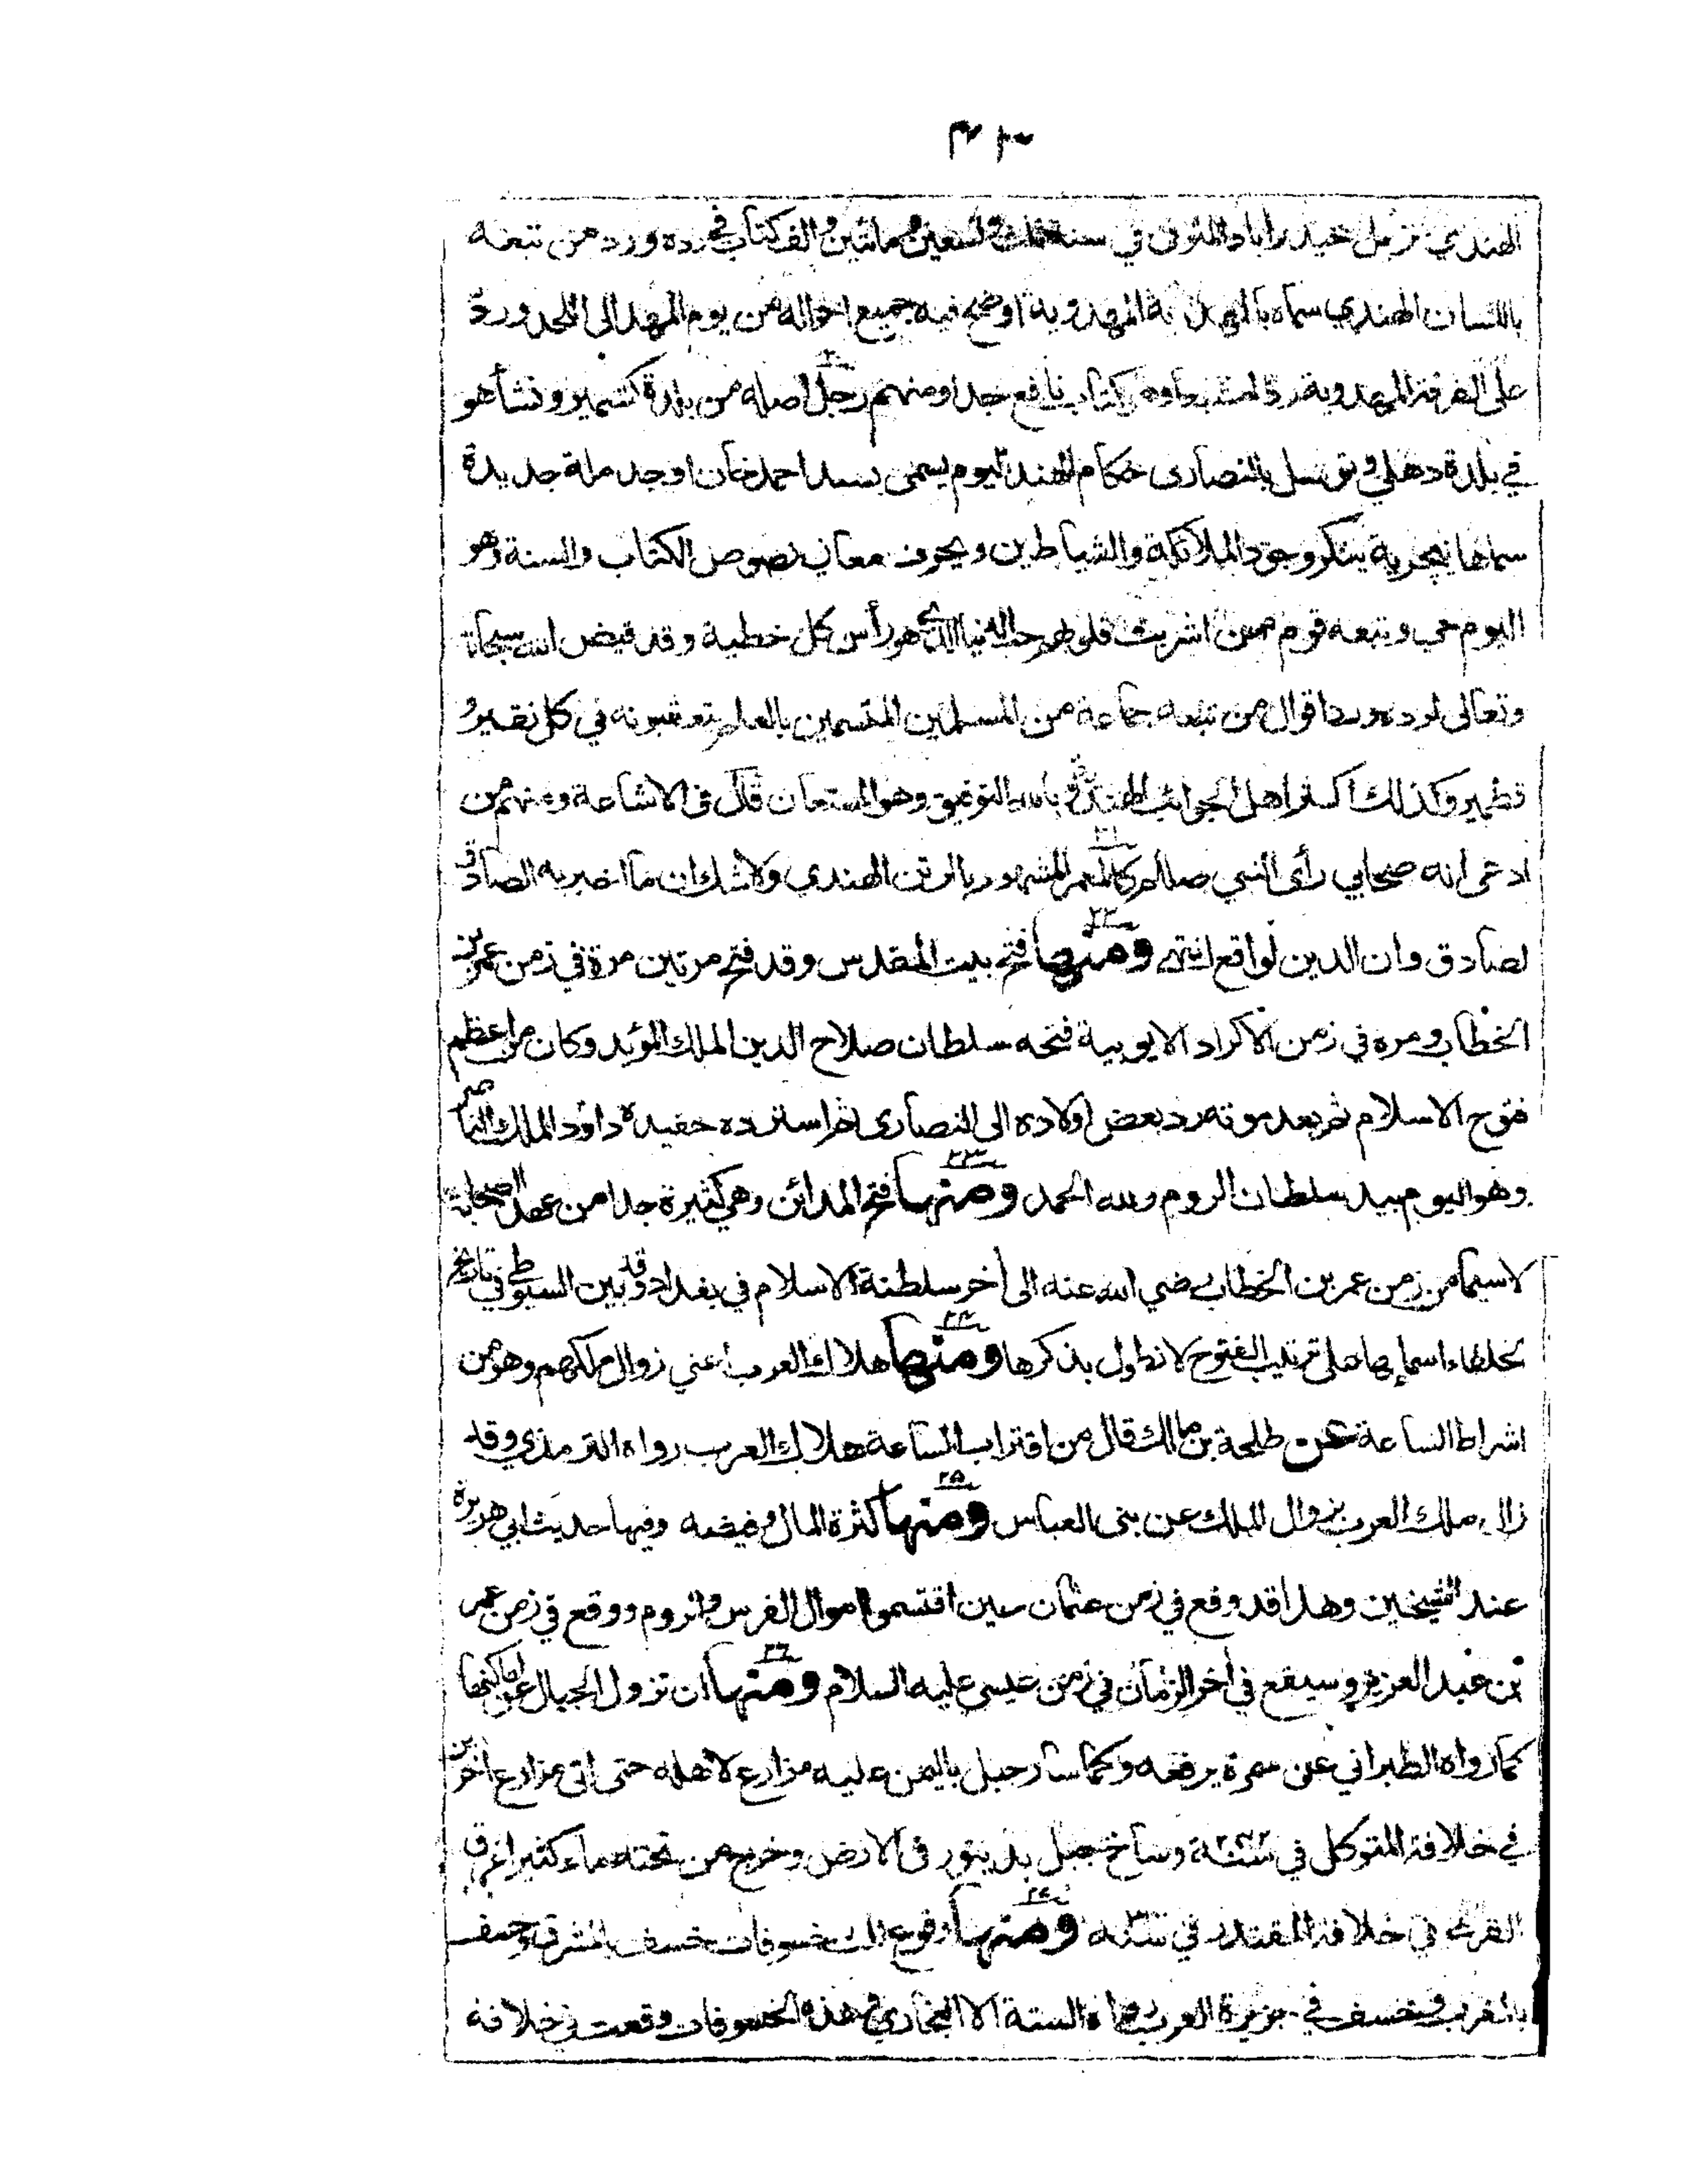 الهندي نزيل حيدراباد المتوفى في سنة وتسعين ومائتين والف كتاب في رده ورد من تبعه
باللسان الهندي سماه بالهدية المهدوية اوضح فيه جميع احواله من يوم المهد الى اللحد ورد
على الفرقة المهدوية ردا مشبعا وهو كتاب نافع جدا ومنهم رجل اصله من بلدة كشمير ونشأ هو
في بلدة دهلي وتوسل بالنصارى حكام الهند اليوم يسمى بسيد احمد خان اوجد ملة جديدة
سماها نيچرية ينكر وجود الملائكة والشياطين ويحرف معاني نصوص الكتاب والسنة وهو
اليوم حي وتبعه قوم ممن اشربت قلوبهم حب الدنيا الذي هو رأس كل خطية وقد قيض الله سبحانه
وتعالى لرده ورد اقوال من تبعه جماعة من المسلمين المتسمين بالعلم يتعقبونه في كل نقير و
قطمير وكذلك اكفر اهل الجوائب الهندي وبالله التوفيق وهو المستعان قال في الاشاعة ومنهم من
٢١
ادعى انه صحابي رأى النبي صللم كالمعمر المشهور بالرتن الهندي ولا شك ان ما اخبر به الصادق
٢٢
لصادق وان الدين لواقع انتهى ومنها فتح بيت المقدس وقد فتح مرتين مرة في زمن عمر بن
الخطاب ومرة في زمن الاكراد الايوبية فتحه سلطان صلاح الدين الملك المؤيد وكان من اعظم
فتوح الاسلام ثم بعد موته رد بعض اولاده الى النصارى ثم استرده حفيده داؤد الملك الناصر
٢٣
وهو اليوم بيد سلطان الروم ولله الحمد ومنها فتح المدائن وهي كثيرة جدا من عهد الصحابة
لاسيما من زمن عمر بن الخطاب رضي الله عنه الى أخر سلطنة الاسلام في بغداد وقد بين السيوطي في تاريخ
٢٤
الخلفاء اسمائها على ترتيب الفتوح لا نطول بذكرها ومنها هلاك العرب اعني زوال ملكهم وهو من
اشراط الساعة عن طلحة بن مالك قال من اقتراب الساعة هلاك العرب رواه الترمذي وقد
٢٥
زال ملك العرب بزوال الملك عن بنى العباس ومنها كثرة المال وفيضه وفيها حديث ابي هريرة
عند الشيخين وهذا قد وقع في زمن عثمان حين اقتسموا اموال الفرس والروم ووقع في زمن عمر
٢٦
بن عبد العزيز وسيقع في أخر الزمان في زمن عيسى عليه السلام ومنها ان تزول الجبال عن اماكنها
كما رواه الطبراني عن سمرة يرفعه وكما سار جبل باليمن عليه مزارع لاهله حتى اتى مزارع أخرين
في خلافة المتوكل في سنة وساخ جبل بدينور فى الارض وخرج من تحته ماء كثير اغرق
٢٧
القرى في خلافة المقتدر في سنة ومنها وقوع ثلث خسوفات خسف بالمشرق وخسف
بالمغرب وخسف في جزيرة العرب رواه الستة الا البخاري وهذه الخسوفات وقعت في خلافة